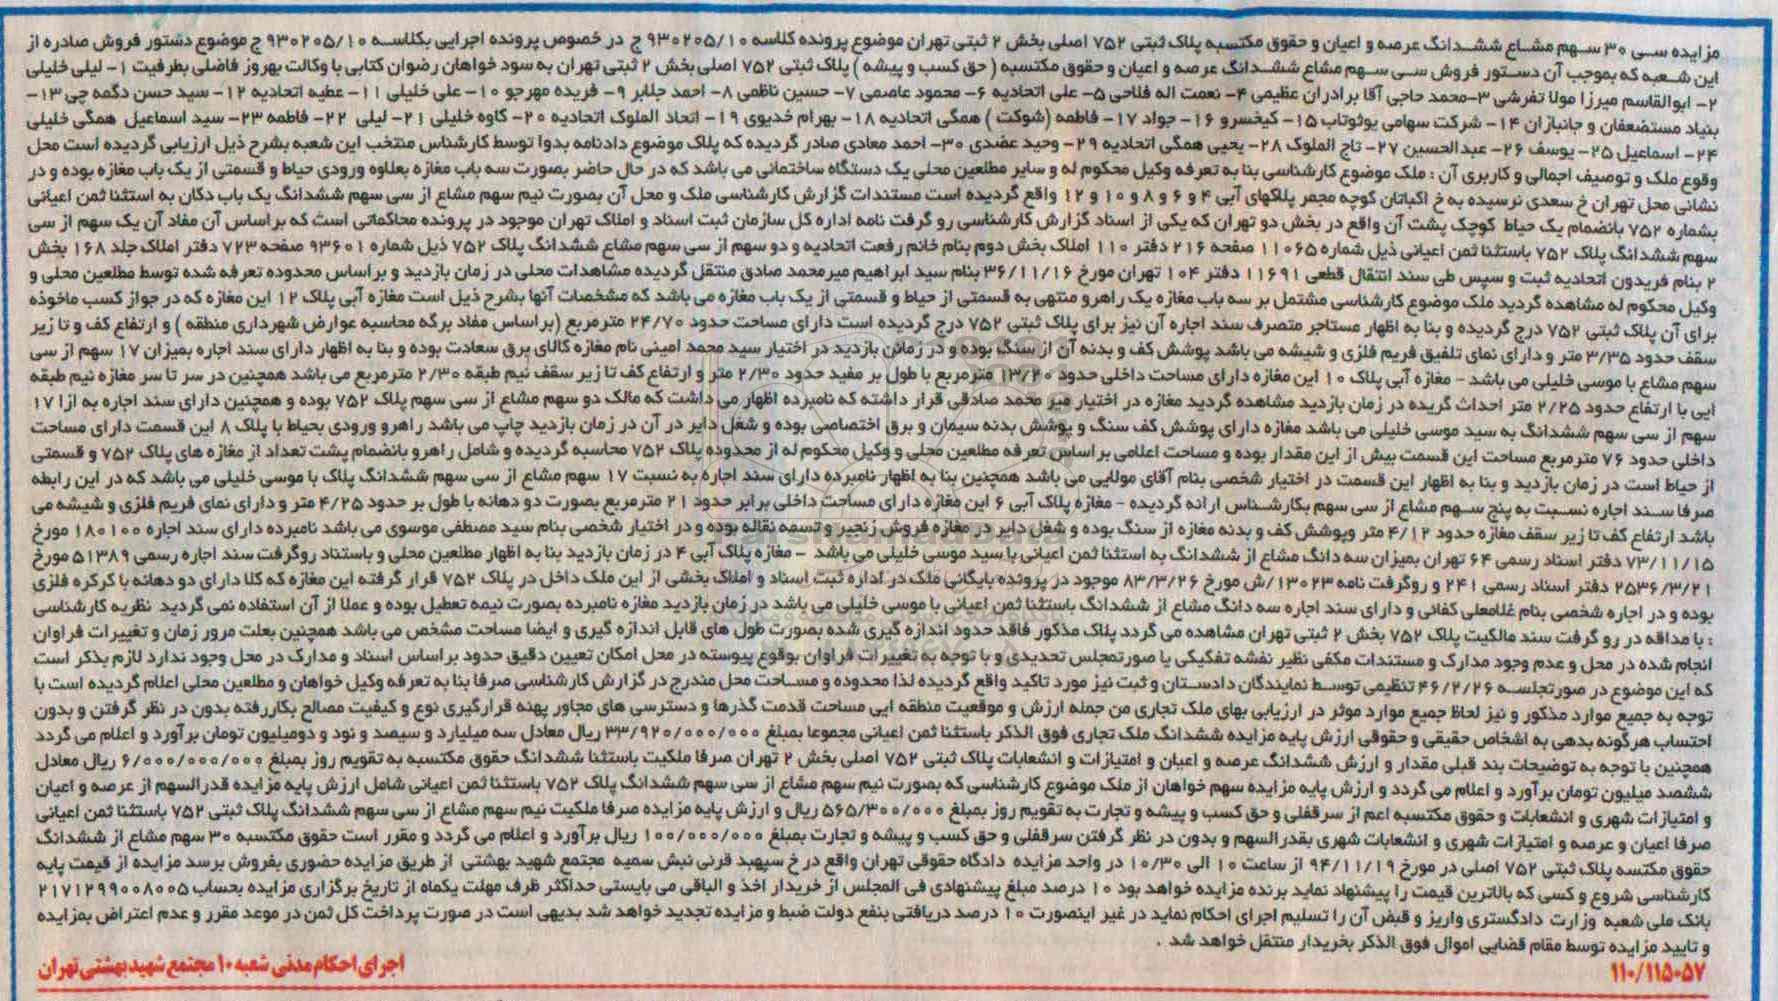 مزایده سـی ۳۰ سـهم مشـاع ششـدانگ عرصه و اعیان و حقوق مکتسبه پلاک ثبتی ۷۵۲ اصلی بخش ۲ ثبتی تهران موضوع پرونده کلاسه ۹۳۰۲۰۵/۱۰ ج در خصوص پرونده اجرایی بکلاسـه ۹۳۰۲۰۵/۱۰ ج موضوع دستور فروش صادره از
این شـعبه که بموجب آن دسـتور فروش سـی سـهم مشاع ششـدانگ عرصه و اعیان و حقوق مکتسبه ( حق کسب و پیشه ) پلاک ثبتی ۷۵۲ اصلی بخش ۲ ثبتی تهران به سود خواهان رضوان کتابی با وکالت بهروز فاضلی بطرفیت ۱- لیلی خلیلی
۲- ابوالقاسم میرزا مولا تفرشی ۳-محمد حاجی آقا برادران عظیمی ۴- نعمت اله فلاحی ۵- علی اتحادیه ۶- محمود عاصمی ۷- حسین ناظمی ۸- احمد جلابر ۹- فریده مهرجو ۱۰- علی خلیلی ۱۱- عطیه اتحادیه ۱۲- سید حسن دگمه چی ۱۳-
بنیاد مستضعفان و جانبازان ۱۴- شرکت سهامی یوئوتاب ۱۵- کیخسرو ۱۶- جواد ۱۷- فاطمه (شوکت ) همگی اتحادیه ۱۸- بهرام خدیوی ۱۹- اتحاد الملوک اتحادیه ۲۰- کاوه خلیلی ۲۱- لیلی ۲۲- فاطمه ۲۳- سید اسماعیل همگی خلیلی
۲۴- اسماعیل ۲۵- یوسف ۲۶- عبدالحسین ۲۷- تاج الملوک ۲۸- یحیی همگی اتحادیه ۲۹- وحید عضدی ۳۰- احمد معادی صادر گردیده که پلاک موضوع دادنامه بدوا توسط کارشناس منتخب این شعبه بشرح ذیل ارزیابی گردیده است محل
وقوع ملک و توصیف اجمالی و کاربری آن : ملک موضوع کارشناسی بنا به تعرفه وکیل محکوم له و سایر مطلعین محلی یک دستگاه ساختمانی می باشد که در حال حاضر بصورت سه باب مغازه بعلاوه ورودی حیاط و قسمتی از یک باب مغازه بوده و در
نشانی محل تهران خ سعدی نرسیده به خ اکباتان کوچه مجمر پلکهای آبی ۴ و ۶ و ۸ و ۱۰ و ۱۲ واقع گردیده است مستندات گزارش کارشناسی ملک و محل آن بصورت نیم سهم مشاع از سی سهم ششدانگ یک باب دکان به استثنا ثمن اعیانی
بشماره ۷۵۲ بانضمام یک حیاط کوچک پشت آن واقع در بخش دو تهران که یکی از اسناد گزارش کارشناسی رو گرفت نامه اداره کل سازمان ثبت اسناد و املاک تهران موجود در پرونده محاکماتی است که براساس آن مفاد آن یک سهم از سی
سهم ششدانگ پلاک ۷۵۲ باستثنا ثمن اعیانی ذیل شماره ۱۱۰۶۵ صفحه ۲۱۶ دفتر ۱۱۰ املاک بخش دوم بنام خانم رفعت اتحادیه و دو سهم از سی سهم مشاع ششدانگ پلاک ۷۵۲ ذیل شماره ۹۳۶۰۱ صفحه ۷۲۳ دفتر املاک جلد ۱۶۸ بخش
۲ بنام فریدون اتحادیه ثبت و سپس طی سند انتقال قطعی ۱۱۶۹۱ دفتر ۱۰۴ تهران مورخ ۳۶/۱۱/۱۶ بنام سید ابراهیم میرمحمد صادق منتقل گردیده مشاهدات محلی در زمان بازدید و براساس محدوده تعرفه شده توسط مطلعین محلی و
وکیل محکوم له مشاهده گردید ملک موضوع کارشناسی مشتمل بر سه باب مغازه یک راهرو منتهی به قسمتی از حیاط و قسمتی از یک باب مغازه می باشد که مشخصات آنها بشرح ذیل است مغازه آبی پلاک ۱۲ این مغازه که در جواز کسب ماخوذه
برای آن پلاک ثبتی ۷۵۲ درج گردیده و بنا به اظهار مستاجر متصرف سند اجاره آن نیز برای پلاک ثبتی ۷۵۲ درج گردیده است دارای مساحت حدود ۲۴/۷۰ مترمربع (براساس مفاد برگه محاسبه عوارض شهرداری منطقه ) و ارتفاع کف و تا زیر
سقف حدود ۳/۳۵ متر و دارای نمای تلفیق فریم فلزی و شیشه می باشد پوشش کف و بدنه آن از سنگ بوده و در زمانن بازدید در اختیار سید محمد امینی نام مغازه کالای برق سعادت بوده و بنا به اظهار دارای سند اجاره بمیزان ۱۷ سهم از سی
سهم مشاع با موسی خلیلی می باشد - مغازه آبی پلاک ۱۰ این مغازه دارای مساحت داخلی حدود ۱۳/۲۰ مترمربع با طول بر مفید حدود ۲/۳۰ متر و ارتفاع کف تا زیر سقف نیم طبقه ۲/۳۰ مترمربع می باشد همچنین در سر تا سر مغازه نیم طبقه
ایی با ارتفاع حدود ۲/۲۵ متر احداث گریده در زمان بازدید مشاهده گردید مغازه در اختیار میر محمد صادقی قرار داشته که نامبرده اظهار می داشت که مالک دو سهم مشاع از سی سهم پلاک ۷۵۲ بوده و همچنین دارای سند اجاره به ازا ۱۷
سهم از سی سهم ششدانگ به سید موسی خلیلی می باشد مغازه دارای پوشش کف سنگ و پوشش بدنه سیمان و برق اختصاصی بوده و شغل دایر در آن در زمان بازدید چاپ می باشد راهرو ورودی بحیاط با پلاک ۸ این قسمت دارای مساحت
داخلی حدود ۷۶ مترمربع مساحت این قسمت بیش از این مقدار بوده و مساحت اعلامی براساس تعرفه مطلعین محلی و وکیل محکوم له از محدوده پلاک ۷۵۲ محاسبه گردیده و شامل راهرو بانضمام پشت تعداد از مغازه های پلاک ۷۵۲ و قسمتی
از حیاط است در زمان بازدید و بنا به اظهار این قسمت در اختیار شخصی بنام آقای مولایی می باشد همچنین بنا به اظهار نامبرده دارای سند اجاره به نسبت ۱۷ سهم مشاع از سی سهم ششدانگ پلاک با موسی خلیلی می باشد که در این رابطه
صرفا سـند اجاره نسـبت به پنج سـهم مشاع از سی سهم بکارشـناس ارائه گردیده - مغازه پلاک آبی ۶ این مغازه دارای مساحت داخلی برابر حدود ۲۱ مترمربع بصورت دو دهانه با طول بر حدود ۴/۲۵ متر و دارای نمای فریم فلزی و شیشه می
باشد ارتفاع کف تا زیر سقف مغازه حدود ۴/۱۲ متر وپوشش کف و بدنه مغازه از سنگ بوده و شغل دایر در مغازه فروش زنجیر و تسمه نقاله بوده و در اختیار شخصی بنام سید مصطفی موسوی می باشد نامبرده دارای سند اجاره ۱۸۰۱۰۰ مورخ
۷۳/۱۱/۱۵ دفتر اسناد رسمی ۶۴ تهران بمیزان سه دانگ مشاع از ششدانگ به استثنا ثمن اعیانی با سید موسی خلیلی می باشد - مغازه پلاک آبی ۴ در زمان بازدید بنا به اظهار مطلعین محلی و باستناد روگرفت سند اجاره رسمی ۵۱۳۸۹ مورخ
۲۵۳۶/۳/۲۱ دفتر اسناد رسمی ۲۴۱ و روگرفت نامه ۱۳۰۲۳/ش مورخ ۸۳/۳/۲۶ موجود در پرونده بایگانی ملک در اداره ثبت اسناد و املاک بخشی از این ملک داخل در پلاک ۷۵۲ قرار گرفته این مغازه که کلا دارای دو دهانه با کرکره فلزی
بوده و در اجاره شخصی بنام غلامعلی کفائی و دارای سند اجاره سه دانگ مشاع از ششدانگ باستثنا ثمن اعیانی با موسی خلیلی می باشد در زمان بازدید مغازه نامبرده بصورت نیمه تعطیل بوده و عملا از آن استفاده نمی گردید نظریه کارشناسی
: با مداقه در رو گرفت سند مالکیت پلاک ۷۵۲ بخش ۲ ثبتی تهران مشاهده می گردد پلاک مذکور فاقد حدود اندازه گیری شده بصورت طول های قابل اندازه گیری و ایضا مساحت مشخص می باشد همچنین بعلت مرور زمان و تغییرات فراوان
انجام شده در محل و عدم وجود مدارک و مستندات مکفی نظیر نقشه تفکیکی یا صورتمجلس تحدیدی و با توجه به تغییرات فراوان بوقوع پیوسته در محل امکان تعیین دقیق حدود براساس اسناد و مدارک در محل وجود ندارد لازم بذکر است
که این موضوع در صورتجلسـه ۴۶/۲/۲۶ تنظیمی توسـط نمایندگان دادستان و ثبت نیز مورد تاکید واقع گردیده لذا محدوده و مساحت محل مندرج در گزارش کارشناسی صرفا بنا به تعرفه وکیل خواهان و مطلعین محلی اعلام گردیده است با
توجه به جمیع موارد مذکور و نیز لحاظ جمیع موارد موثر در ارزیابی بهای ملک تجاری من جمله ارزش و موقعیت منطقه ایی مساحت قدمت گذرها و دسترسی های مجاور پهنه قرارگیری نوع و کیفیت مصالح بکاررفته بدون در نظر گرفتن و بدون
احتساب هرگونه بدهی به اشخاص حقیقی و حقوقی ارزش پایه مزایده ششدانگ ملک تجاری فوق الذکر باستثنا ثمن اعیانی مجموعا بمبلغ ۳۳/۹۲۰/۰۰۰/۰۰۰ ریال معادل سه میلیارد و سیصد و نود و دومیلیون تومان برآورد و اعلام می گردد
همچنین با توجه به توضیحات بند قبلی مقدار و ارزش ششدانگ عرصه و اعیان و امتیازات و انشعابات پلاک ثبتی ۷۵۲ اصلی بخش ۲ تهران صرفا ملکیت باستثنا ششدانگ حقوق مکتسبه به تقویم روز بمبلغ ۶/۰۰۰/۰۰۰/۰۰۰ ریال معادل
ششصد میلیون تومان برآورد و اعلام می گردد و ارزش پایه مزایده سهم خواهان از ملک موضوع کارشناسی که بصورت نیم سهم مشاع از سی سهم ششدانگ پلاک ۷۵۲ باستثنا ثمن اعیانی شامل ارزش پایه مزایده قدرالسهم از عرصه و اعیان
و امتیازات شهری و انشعابات و حقوق مکتسبه اعم از سرقفلی و حق کسب و پیشه و تجارت به تقویم روز بمبلغ ۵۶۵/۳۰۰/۰۰۰ ریال و ارزش پایه مزایده صرفا ملکیت نیم سهم مشاع از سی سهم ششدانگ پلاک ثبتی ۷۵۲ باستثنا ثمن اعیانی
صرفا اعیان و عرصه و امتیازات شهری و انشعابات شهری بقدرالسهم و بدون در نظر گرفتن سرقفلی و حق کسب و پیشه و تجارت بمبلغ ۱۰۰/۰۰۰/۰۰۰ ریال برآورد و اعلام می گردد و مقرر است حقوق مکتسبه ۳۰ سهم مشاع از ششدانگ
حقوق مکتسه پلاک ثبتی ۷۵۲ اصلی در مورخ ۹۴/۱۱/۱۹ از ساعت ۱۰ الی ۱۰/۳۰ در واحد مزایده دادگاه حقوقی تهران واقع در خ سپهبد قرنی نبش سمیه مجتمع شهید بهشتی از طریق مزایده حضوری بفروش برسد مزایده از قیمت پایه
کارشناسی شروع و کسی که بالاترین قیمت را پیشنهاد نماید برنده مزایده خواهد بود ۱۰ درصد مبلغ پیشنهادی فی المجلس از خریدار اخذ و الباقی می بایستی حداکثر ظرف مهلت یکماه از تاریخ برگزاری مزایده بحساب ۲۱۷۱۲۹۹۰۰۸۰۰۵
بانک ملی شعبه وزارت دادگستری واریز و قبض آن را تسلیم اجرای احکام نماید در غیر اینصورت ۱۰ درصد دریافتی بنفع دولت ضبط و مزایده تجدید خواهد شد بدیهی است در صورت پرداخت کل ثمن در موعد مقرر و عدم اعتراض بمزایده
و تایید مزایده توسط مقام قضایی اموال فوق الذکر بخریدار منتقل خواهد شد .
۱۱۰/۱۱۵۰۵۷ اجرای احکام مدنی شعبه ۱۰ مجتمع شهید بهشتی تهران